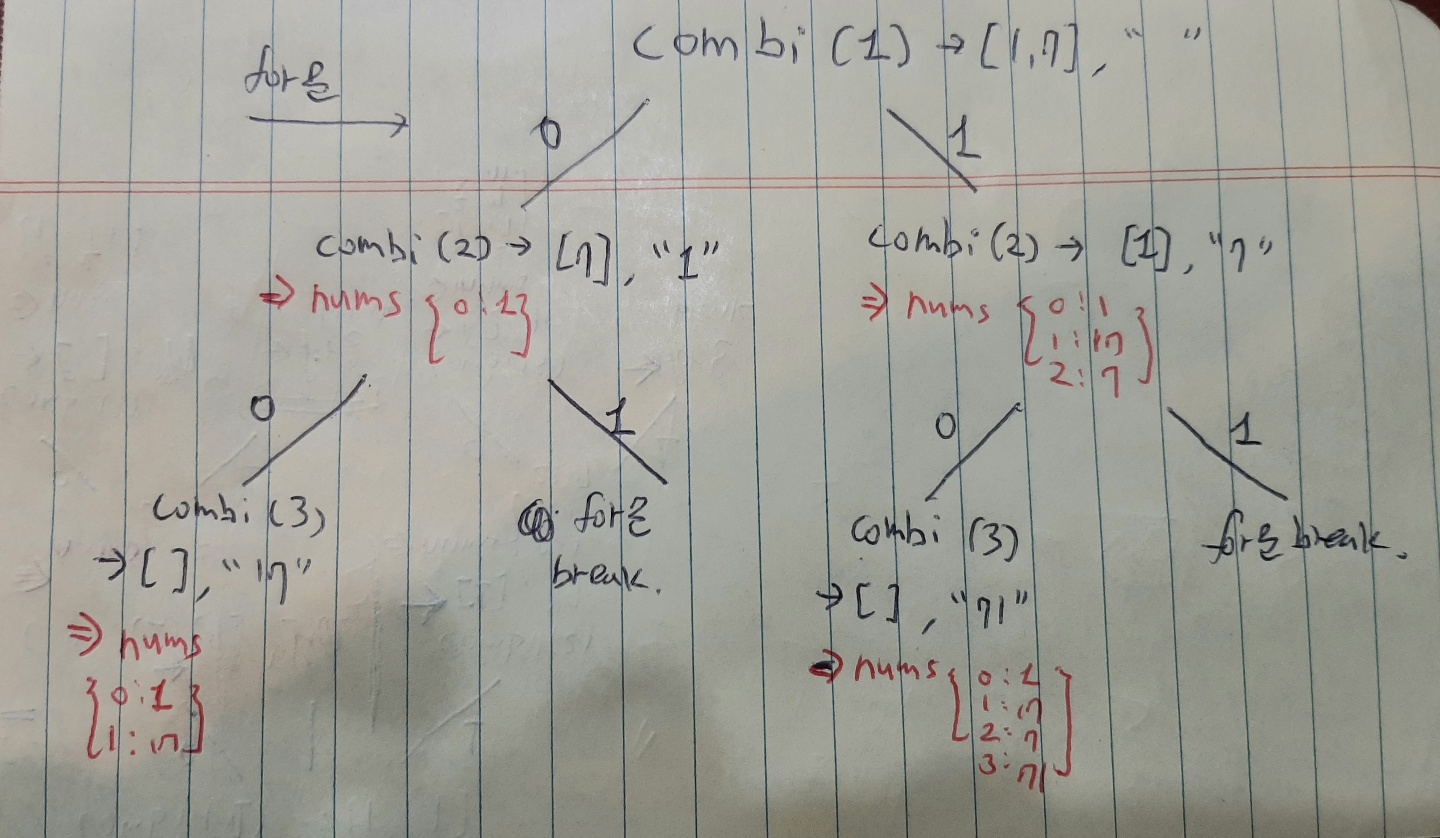 for문
combi (1) → [1,7], “ ”
0
1
combi (2) → [7], “1”
⇒ nums {0:1}
combi (2) → [1], “7”
⇒ nums {0:1
1:17
2:7}
0
1
0
1
combi (3)
→ [ ], “17”
⇒ nums
{0:1
1:17}
for문
break.
combi (3)
→ [ ], “71”
⇒ nums {0:1
1:17
2:7
3:71}
for문 break.